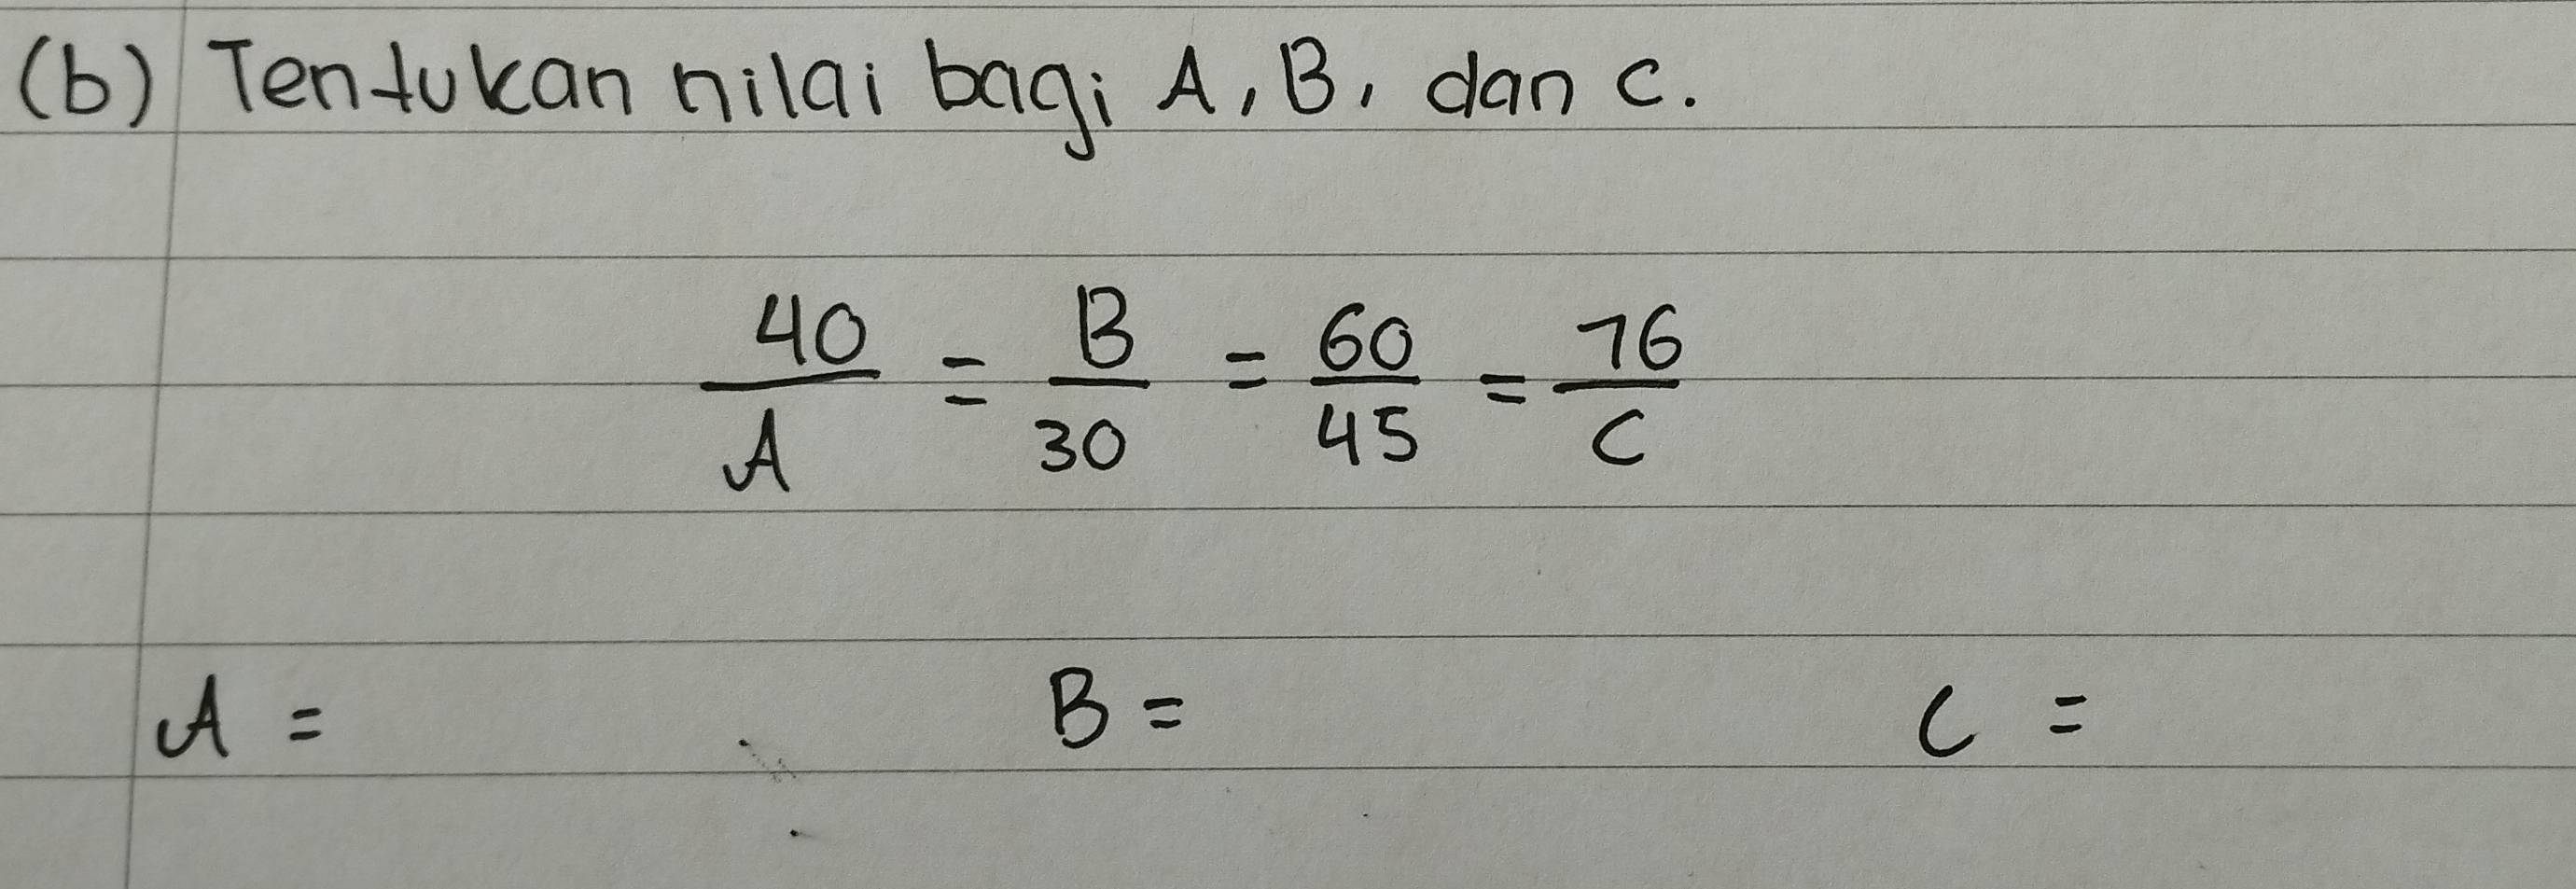 (b) Tentukan nilai bagi A, B, dan C.
40/A = B/30 = 60/45 = 76/C
A =    B =    C =